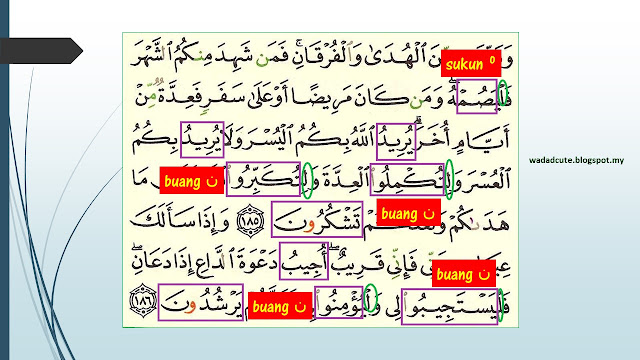 ٱلْهُدَىٰ وَٱلْفُرْقَانِ ۚ فَمَن شَهِدَ مِنكُمُ ٱلشَّهْرَ
sukun °
فَلْيَصُمْهُ ۖ وَمَن كَانَ مَرِيضًا أَوْ عَلَىٰ سَفَرٍ فَعِدَّةٌ مِّنْ
أَيَّامٍ أُخَرَ ۗ يُرِيدُ ٱللَّهُ بِكُمُ ٱلْيُسْرَ وَلَا يُرِيدُ بِكُمُ
wadadcute.blogspot.my
ٱلْعُسْرَ وَلِتُكْمِلُوا۟ ٱلْعِدَّةَ وَلِتُكَبِّرُوا۟ مَا
buang ن
buang ن
هَدَىٰكُمْ تَشْكُرُونَ ١٨٥ وَإِذَا سَأَلَكَ
فَإِنِّى قَرِيبٌ ۖ أُجِيبُ دَعْوَةَ ٱلدَّاعِ إِذَا دَعَانِ ۖ
buang ن
فَلْيَسْتَجِيبُوا۟ لِى وَلْيُؤْمِنُوا۟ يَرْشُدُونَ ١٨٦
buang ن